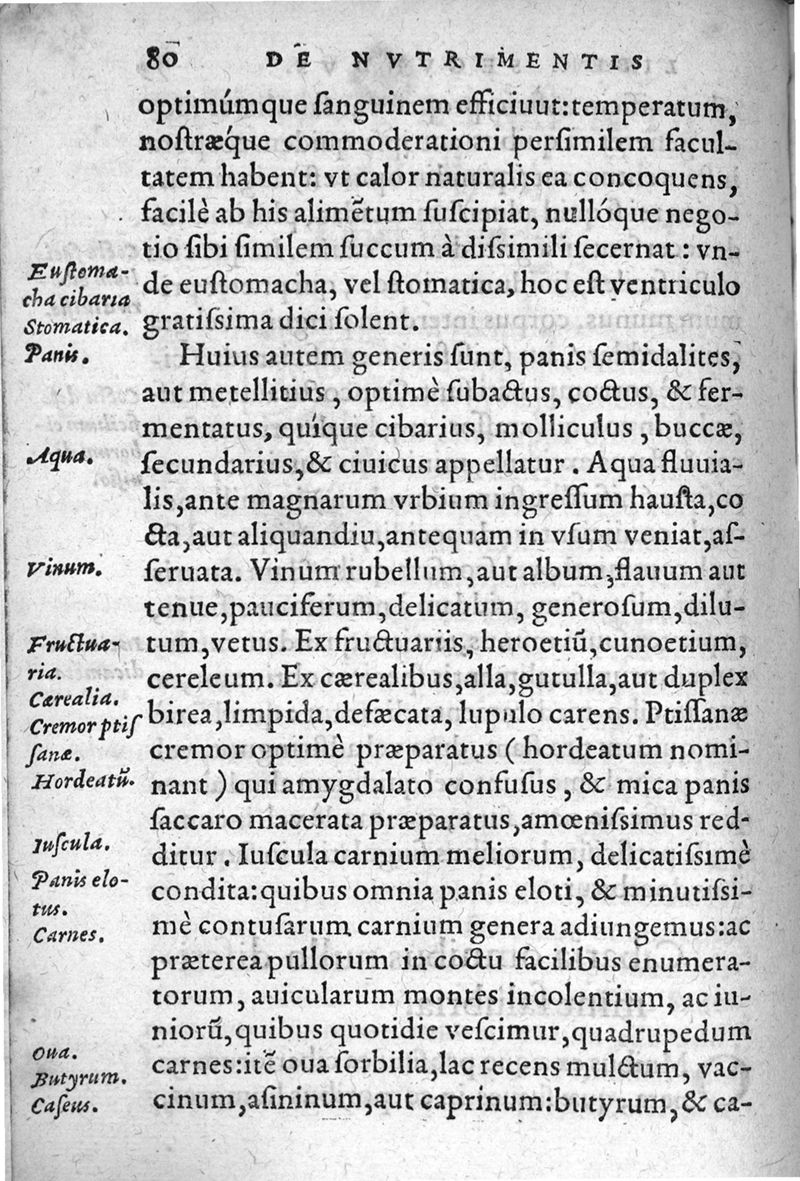 80 DE NVTRIMENTIS
optimúmque ſanguinem efficiuut:temperatum,
noſtræq́ue commoderationi perſimilem facul-
tatem habent: vt calor naturalis ea concoquens,
facilè ab his alimẽtum ſuſcipiat, nullóque nego-
tio ſibi ſimilem ſuccum à diſsimili ſecernat: vn-
de euſtomacha, vel ſtomatica, hoc eſt ventriculo
gratiſsima dici ſolent.
Huius autem generis ſunt, panis ſemidalites,
aut metellitius, optimè ſubactus, coctus, & fer-
mentatus, quíque cibarius, molliculus, buccæ,
ſecundarius,& ciuicus appellatur. Aqua fluuia-
lis,ante magnarum vrbium ingreſſum hauſta,co
cta,aut aliquandiu,antequam in vſum veniat,aſ-
ſeruata. Vinum rubellum,aut album,flauum aut
tenue,pauciferum,delicatum, generoſum,dilu-
tum,vetus. Ex fructuariis, heroetiũ,cunoetium,
cereleum. Ex cærealibus,alla,gutulla,aut duplex
birea,limpida,defæcata, lupulo carens. Ptiſſanæ
cremor optimè præparatus (hordeatum nomi-
nant) qui amygdalato confuſus, & mica panis
ſaccaro macerata præparatus,amœniſsimus red-
ditur. Iuſcula carnium meliorum, delicatiſsimè
condita:quibus omnia panis eloti, & minutiſsi-
mè contuſarum carnium genera adiungemus:ac
præterea pullorum in coctu facilibus enumera-
torum, auicularum montes incolentium, ac iu-
niorũ,quibus quotidie veſcimur,quadrupedum
carnes:itẽ oua ſorbilia,lac recens mulctum, vac-
cinum,aſininum,aut caprinum:butyrum,& ca-
Euſtoma-
cha cibaria
Stomatica.
Panis.
Aqua.
Vinum.
Fructua-
ria.
Cærealia.
Cremor ptiſ
ſanæ.
Hordeatũ.
Iuſcula.
Panis elo-
tus.
Carnes.
Oua.
Butyrum.
Caſeus.